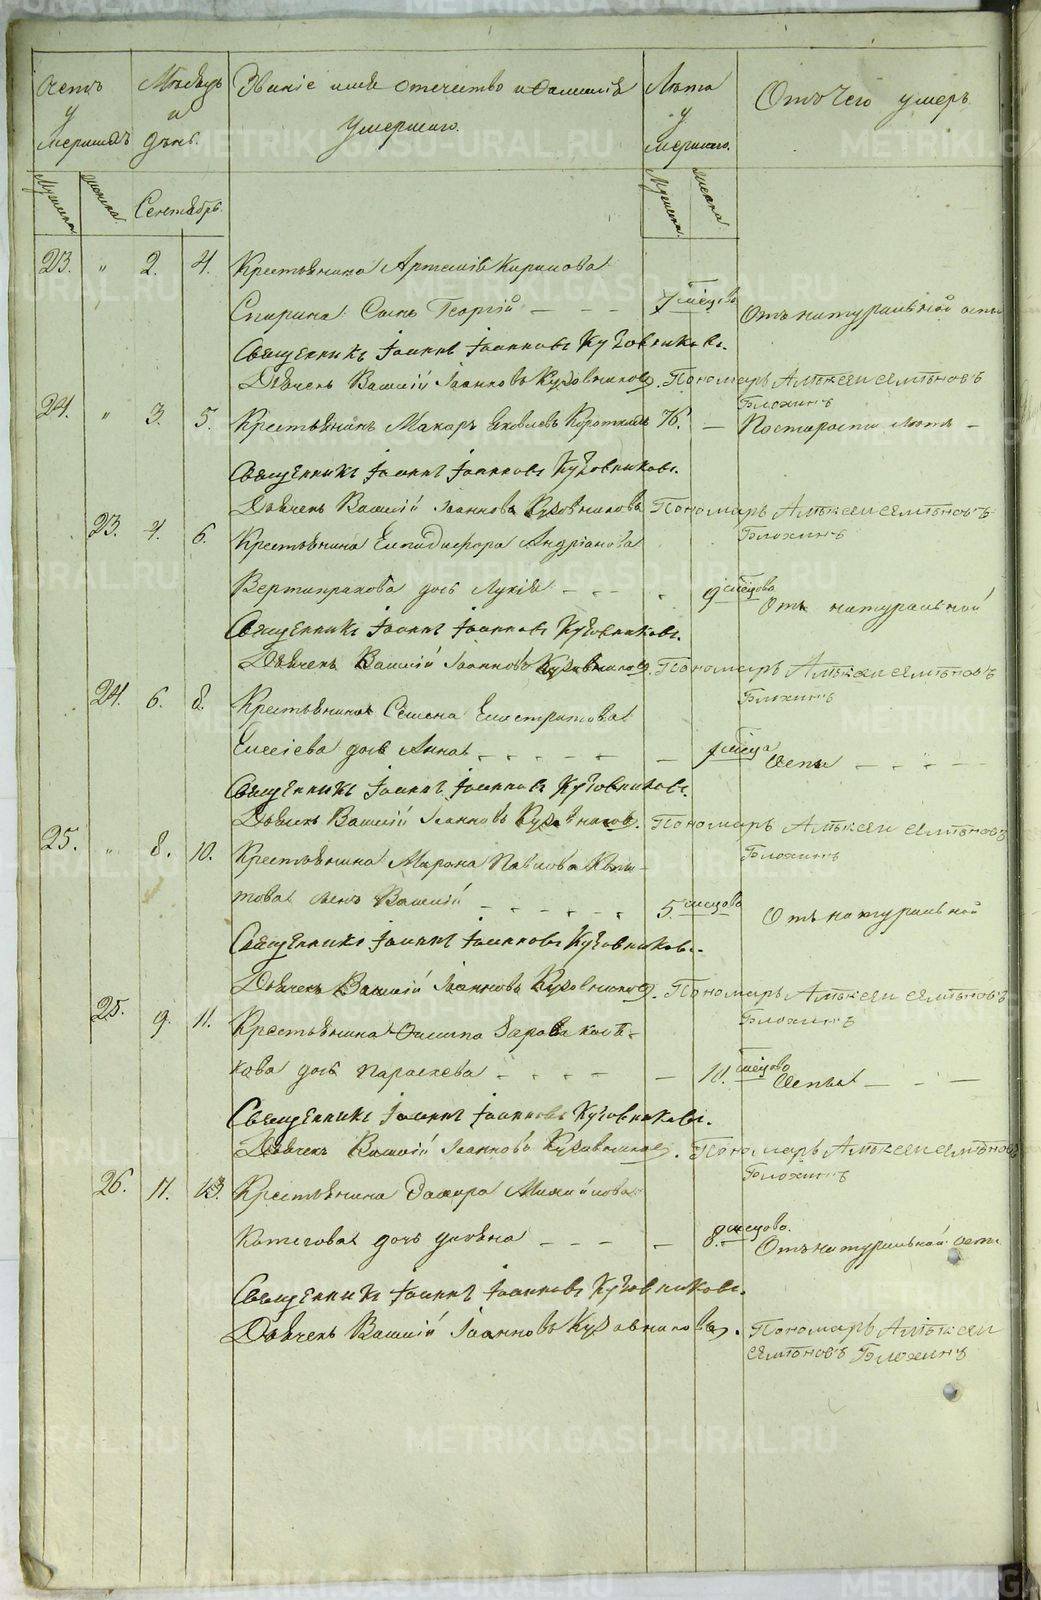 Счетъ умершихъ
Мужеска
Женска
Мѣсяцъ и день.
Сентябрь.
Званіе имя отечество и фамилія
умершаго.
Лѣта умершаго.
Мужеска
Женска
Отъ чего умеръ
23. " 2. 4. Крестьянина Артемія Кирилова
Спирина Сынъ Георгій — — — 7 мѣсцовъ Отъ натуральной оспы
Священникъ Іоаннъ Іоанновъ Кузовниковъ.
Дьячекъ Василій Іоанновъ Кузовниковъ. Пономарь Алѣксѣи Сѣмѣновъ
Блохинъ
24. " 3. 5. Крестьянинъ Макаръ Яковлевъ 76. — По старости лѣтъ —
Священникъ Іоаннъ Іоанновъ Кузовниковъ.
Дьячекъ Василій Іоанновъ Кузовниковъ Пономарь Алѣксѣи Сѣмѣновъ
Блохинъ
23. 4. 6. Крестьянина Елпидифора Андріанова
Вертипрахова дочь Лукія — — — 9 мѣсцовъ Отъ натуральной
Священникъ Іоаннъ Іоанновъ Кузовниковъ.
Дьячекъ Василій Іоанновъ Кузовниковъ. Пономарь Алѣксѣи Сѣмѣновъ
Блохинъ
24. 6. 8. Крестьянина Семена Елистратова
Елисіева дочь Анна — — — — мѣсца оспы — — — —
Священникъ Іоаннъ Іоанновъ Кузовниковъ.
Дьячекъ Василій Іоанновъ Кузовниковъ. Пономарь Алѣксѣи Сѣмѣновъ
Блохинъ
25. " 8. 10. Крестьянина Мирона Павлова
това сынъ Василій — — — — 5 мѣсцовъ Отъ натуральной
Священникъ Іоаннъ Іоанновъ Кузовниковъ.
Дьячекъ Василій Іоанновъ Кузовниковъ. Пономарь Алѣксѣи Сѣмѣновъ
Блохинъ
25. 9. 11. Крестьянина Филипа
кова дочь Параскева — — — — — мѣсцовъ Оспы — — —
Священникъ Іоаннъ Іоанновъ Кузовниковъ.
Дьячекъ Василій Іоанновъ Кузовниковъ. Пономарь Алѣксѣи Сѣмѣновъ
Блохинъ
26. 11. 13. Крестьянина Михайлова
Котегова дочь — — — — 8 мѣсцовъ. Отъ натуральной оспы
Священникъ Іоаннъ Іоанновъ Кузовниковъ.
Дьячекъ Василій Іоанновъ Кузовниковъ. Пономарь Алѣксѣи
Сѣмѣновъ Блохинъ
METRIKI.GASO-URAL.RU